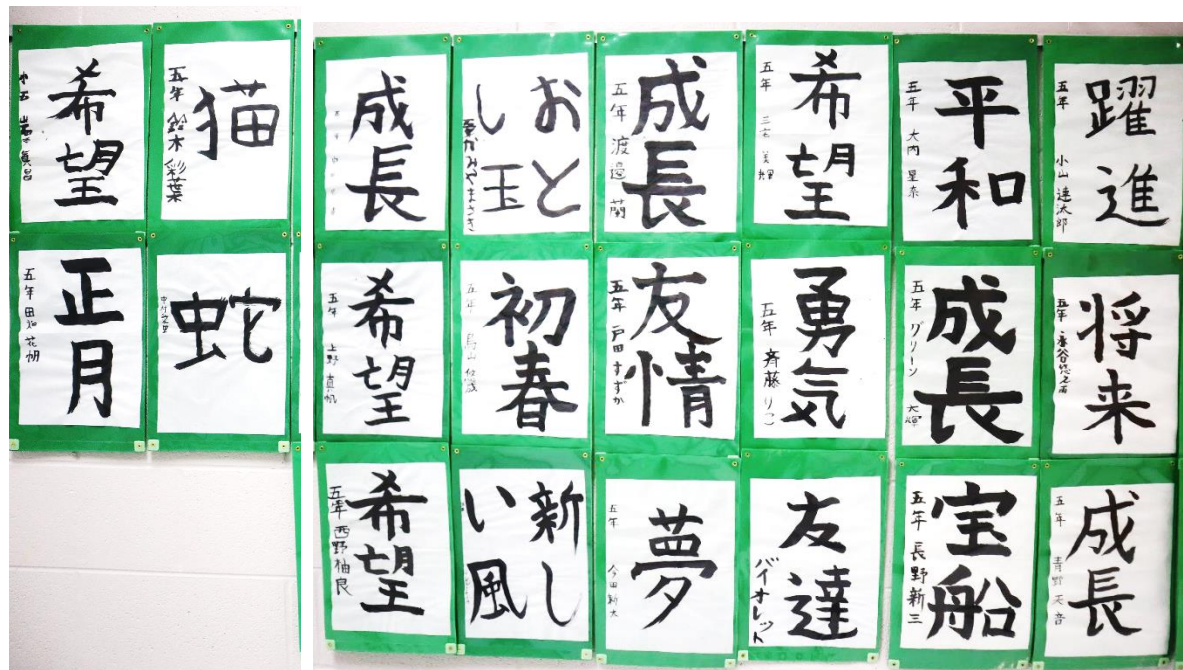 希望
猫
五年 鈴木 彩葉
正月
蛇
成長
おと
し玉
成長
五年 渡邉 蘭
希望
五年
平和
五年 大内 星奈
躍進
五年 小山 連太郎
希望
五年 上野 真帆
初春
五年 鳥山
友情
五年 戸田 すずか
勇気
五年 斉藤 りこ
成長
五年 グリーン 大輝
将来
五年
希望
五年 西野 柚良
新し
い風
夢
五年 今田新大
友達
バイオレット
宝船
五年 長野新三
成長
五年 青野 天音